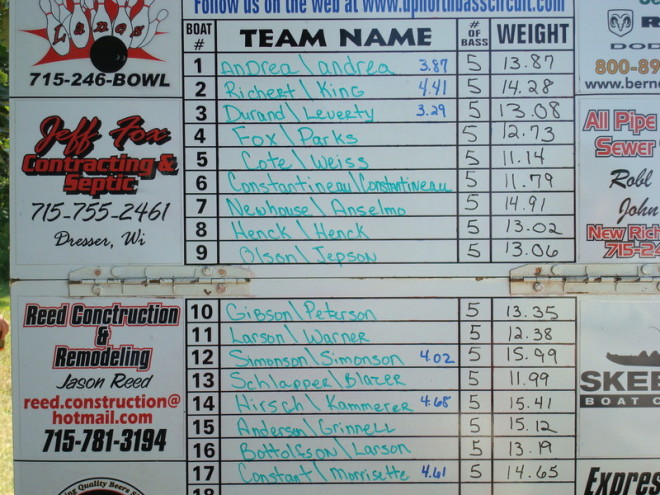 Follow us on the web at www.upnorthbasscircuit.com
Lanes
715-246-BOWL
BOAT # TEAM NAME # OF BASS WEIGHT
1 Andrea\andrea 3.87 5 13.87
2 Richert\King 4.41 5 14.28
3 Durand\Leverty 3.29 5 13.08
4 Fox\Parks 5 12.73
5 Cote\Weiss 5 11.14
6 Constantineau\Constantineau 5 11.79
7 Newhouse\Anselmo 5 14.91
8 Henck\Henck 5 13.02
9 Olson\Jepson 5 13.06
10 Gibson\Peterson 5 13.35
11 Larson\Warner 5 12.38
12 Simonson\Simonson 4.02 5 15.99
13 Schlapper\Blazer 5 11.99
14 Hirsch\Kammerer 4.68 5 15.41
15 Anderson\Grinnell 5 15.12
16 Bottolfson\Larson 5 13.19
17 Constant\Morrisette 4.61 5 14.65
18
Jeff Fox
Contracting &
Septic
715-755-2461
Dresser, Wi
Reed Construction
&
Remodeling
Jason Reed
reed.construction@
hotmail.com
715-781-3194
ing Quality Beers S
R
DOD
800-89
www.berne
All Pipe
Sewer
Robl
John
New Rich
715-2
SKEE
BOAT C
Express